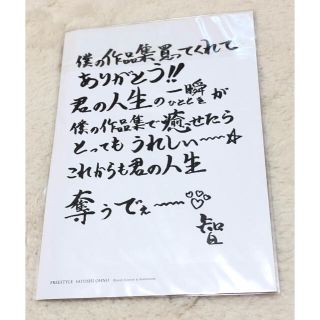 僕の作品集買ってくれて
ありがとう!!
君の人生の一瞬が
ひととき
僕の作品集で癒せたら
とってもうれしい〰〰☆
これからも君の人生
奪うでぇ〰〰♡♡♡
智
FREESTYLE SATOSHI OHNO